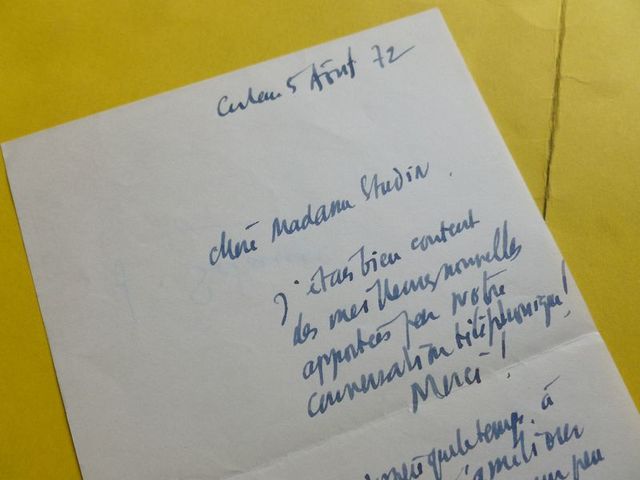 5 Août 72
Chère Madame Studin.
J'étais bien content
des meilleures nouvelles
apportées par notre
conversation téléphonique!
Merci!
quelque temps à
s'améliorer
un peu